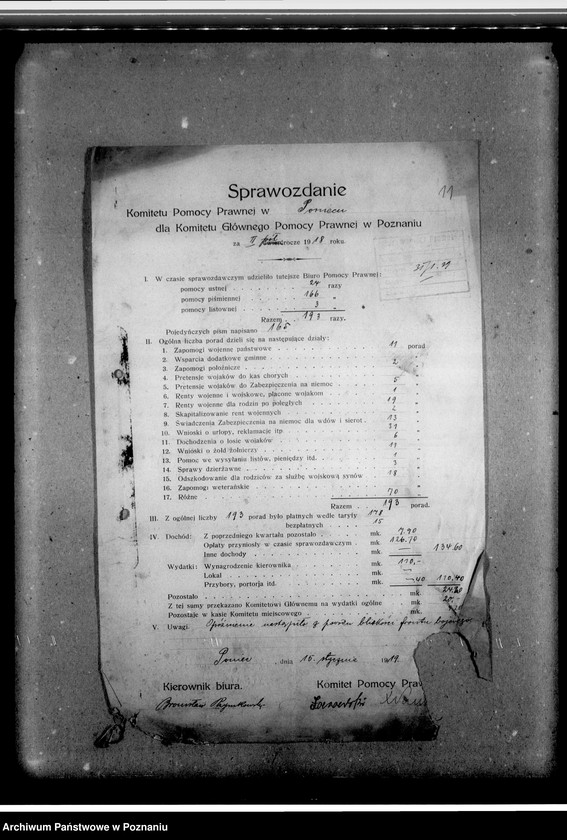 11
Sprawozdanie
Komitetu Pomocy Prawnej w Poniecu
dla Komitetu Głównego Pomocy Prawnej w Poznaniu
za II półrocze 1918 roku.
I. W czasie sprawozdawczym udzieliło tutejsze Biuro Pomocy Prawnej:
pomocy ustnej 24 razy
pomocy piśmiennej 166 "
pomocy listownej 3 "
Razem 193 razy.
Pojedyńczych pism napisano 165
II. Ogólna liczba porad dzieli się na następujące działy:
1. Zapomogi wojenne państwowe 13 porad
2. Wsparcia dodatkowe gminne
3. Zapomogi położnicze 2 "
4. Pretensje wojaków do kas chorych
5. Pretensje wojaków do Zabezpieczenia na niemoc 5 "
6. Renty wojenne i wojskowe, płacone wojakom 1 "
7. Renty wojenne dla rodzin po poległych 19 "
8. Skapitalizowanie rent wojennych 2 "
9. Świadczenia Zabezpieczenia na niemoc dla wdów i sierot 13 "
10. Wnioski o urlopy, reklamacje itp
11. Dochodzenia o losie wojaków 6 "
12. Wnioski o żołd żołnierzy
13. Pomoc we wysyłaniu listów, pieniędzy itd. 1 "
14. Sprawy dzierżawne 3 "
15. Odszkodowanie dla rodziców za służbę wojskową synów 18 "
16. Zapomogi weterańskie "
17. Różne 70 "
Razem 193 porad.
III. Z ogólnej liczby 193 porad było płatnych wedle taryfy 178
bezpłatnych 15
IV. Dochód: Z poprzedniego kwartału pozostało mk. 7.90
Opłaty przyniosły w czasie sprawozdawczym mk. 126.70
Inne dochody mk. — 134.60
Wydatki: Wynagrodzenie kierownika mk. 110,-
Lokal mk. —
Przybory, portorja itd. mk. —40 110,40
Pozostało mk. 24.20
Z tej samy przekazano Komitetowi Głównemu na wydatki ogólne mk.
Pozostaje w kasie Komitetu miejscowego mk.
V. Uwagi Opóźnienie nastąpiło z powodu bliskości frontu
Poniec, dnia 15. stycznia 1919.
Kierownik biura. Komitet Pomocy Praw
Bronisław